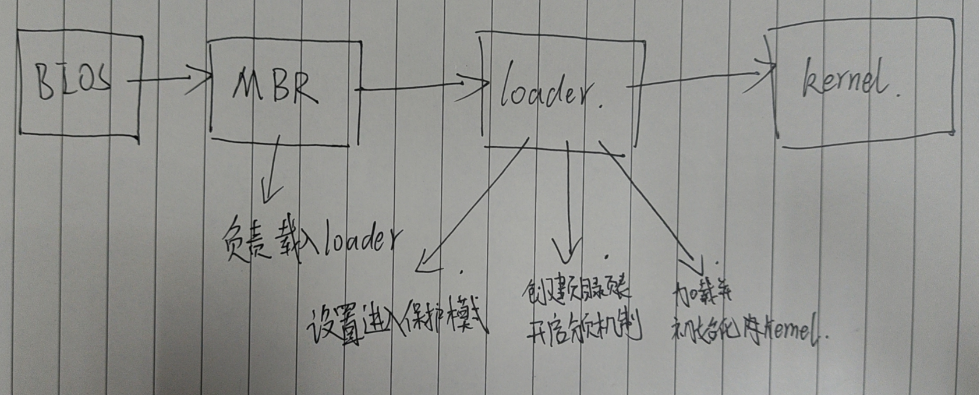 BIOS
MBR
loader.
kernel.
负责载入loader
设置进入保护模式
创建页目录页表
开启分页机制
加载并
初始化内kernel.